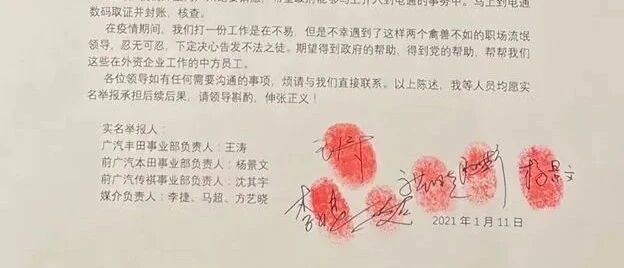 数码取证并封账、核查。
在疫情期间，我们打一份工作是在不易，但是不幸遇到了这样两个禽兽不如的职场流氓
领导，忍无可忍，下定决心告发不法之徒。期望得到政府的帮助，得到党的帮助，帮帮我们
这些在外资企业工作的中方员工。
各位领导如有任何需要沟通的事项，烦请与我们直接联系。以上陈述，我等人员均愿实
名举报承担后续后果，请领导斟酌，伸张正义！
实名举报人：
广汽丰田事业部负责人：王涛
前广汽本田事业部负责人：杨景文
前广汽传祺事业部负责人：沈其宇
媒介负责人：李捷、马超、方艺晓
杨景文
2021 年 1 月 11 日